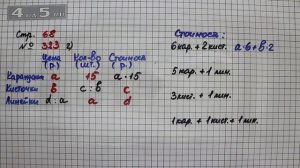 4 на 5.com
Стр. 68
№ 323 2)
Цена Кол-во Стоимость
(р.) (шт.) (р.)
Карандаши a 15 a · 15
Кисточки b c : b c
Линейки d : a a d
Стоимость:
6 кар. + 2 кист. a · 6 + b · 2
5 кар. + 1 лин.
3 кист. + 1 лин.
1 кар. + 1 кист. + 1 лин.